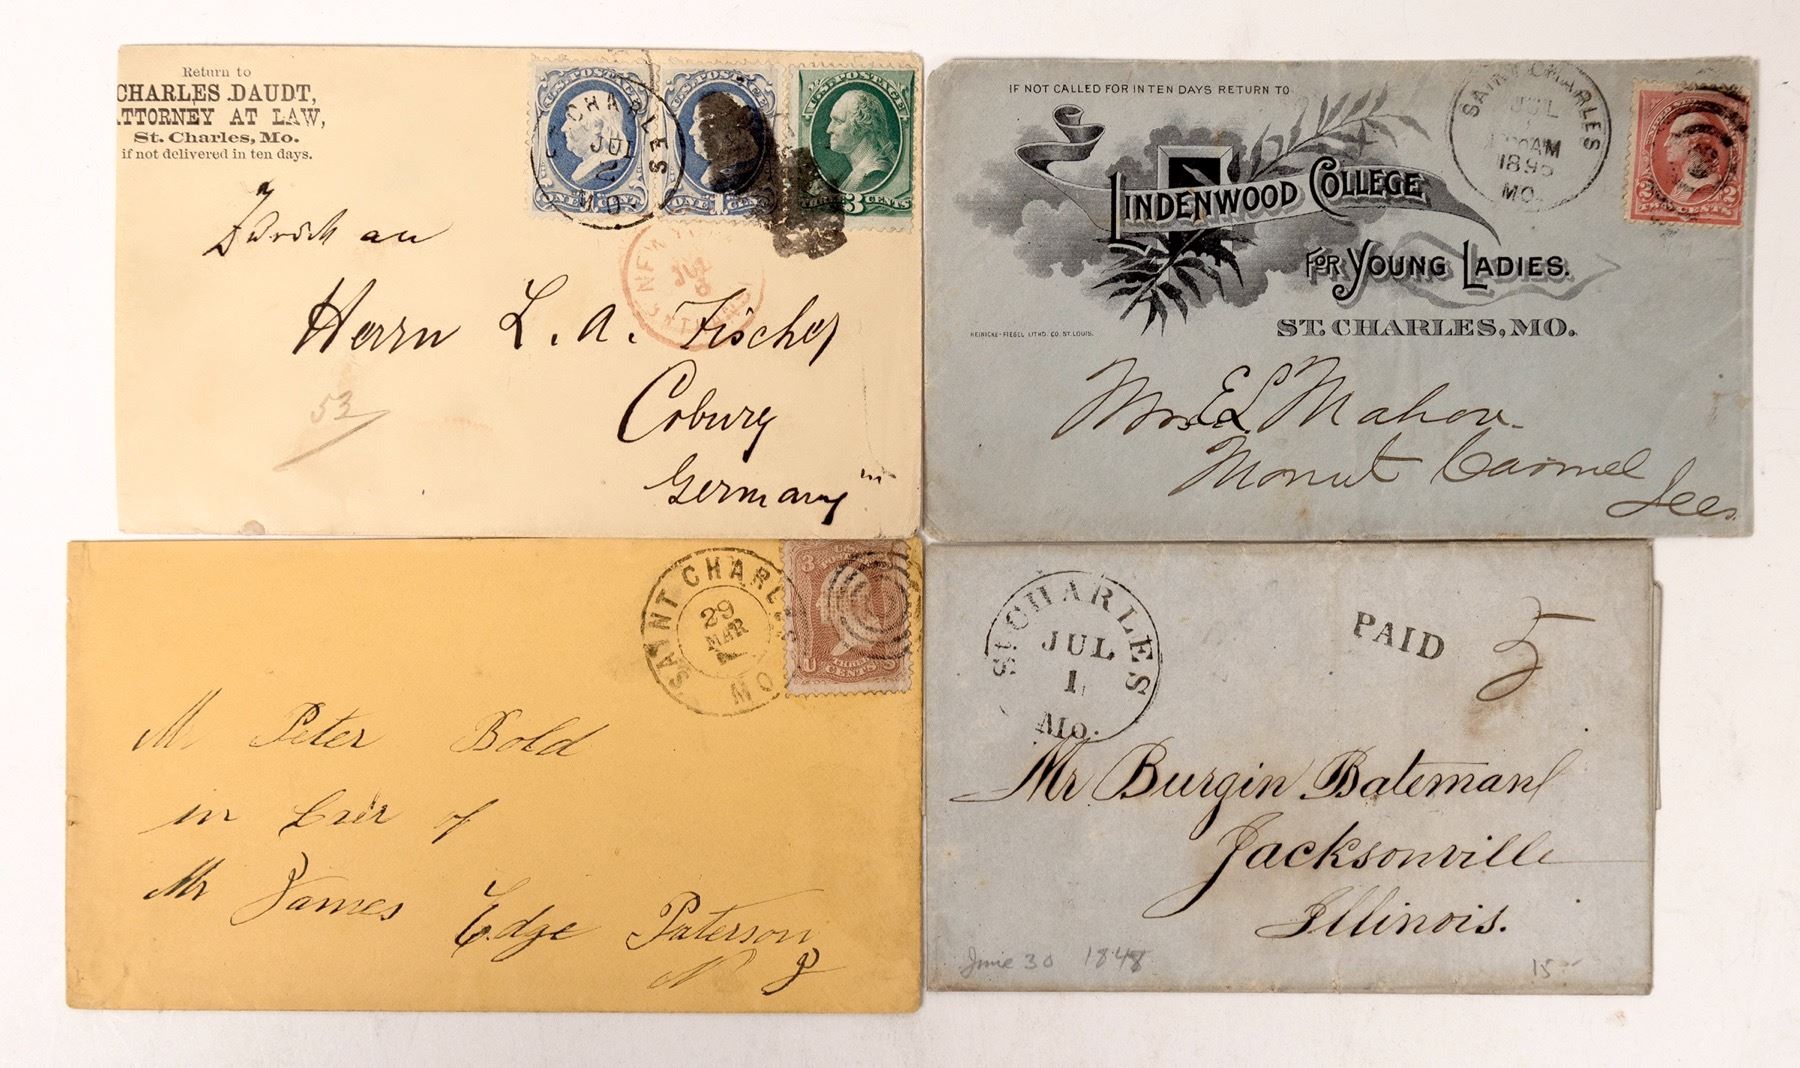 Return to
CHARLES DAUDT,
ATTORNEY AT LAW,
St. Charles, Mo.
if not delivered in ten days.
ST. CHARLES
JUL
2
MO.
U.S. POSTAGE
ONE CENT
U.S. POSTAGE
ONE 1 CENT
U.S. POSTAGE
THREE 3 CENTS
NEW YORK
JUL
an
Herrn L. A. Fischer
Coburg
Germany
53
IF NOT CALLED FOR IN TEN DAYS RETURN TO
LINDENWOOD COLLEGE
FOR YOUNG LADIES.
ST. CHARLES, MO.
HEINICKE-FIEGEL LITHO. CO. ST. LOUIS.
SAINT CHARLES
JUL
AM
1895
MO.
2 2
TWO CENTS
Mrs E L Mahon.
Mount Carmel
Ills
SAINT CHARLES
29
MAR
MO
3
THREE
U CENTS S
Mr Peter Bold
in Care of
Mr James Edge Paterson
N J
St. CHARLES
JUL
1
Mo.
PAID 5
Mr Burgin Bateman
Jacksonville
Illinois.
June 30 1848
15